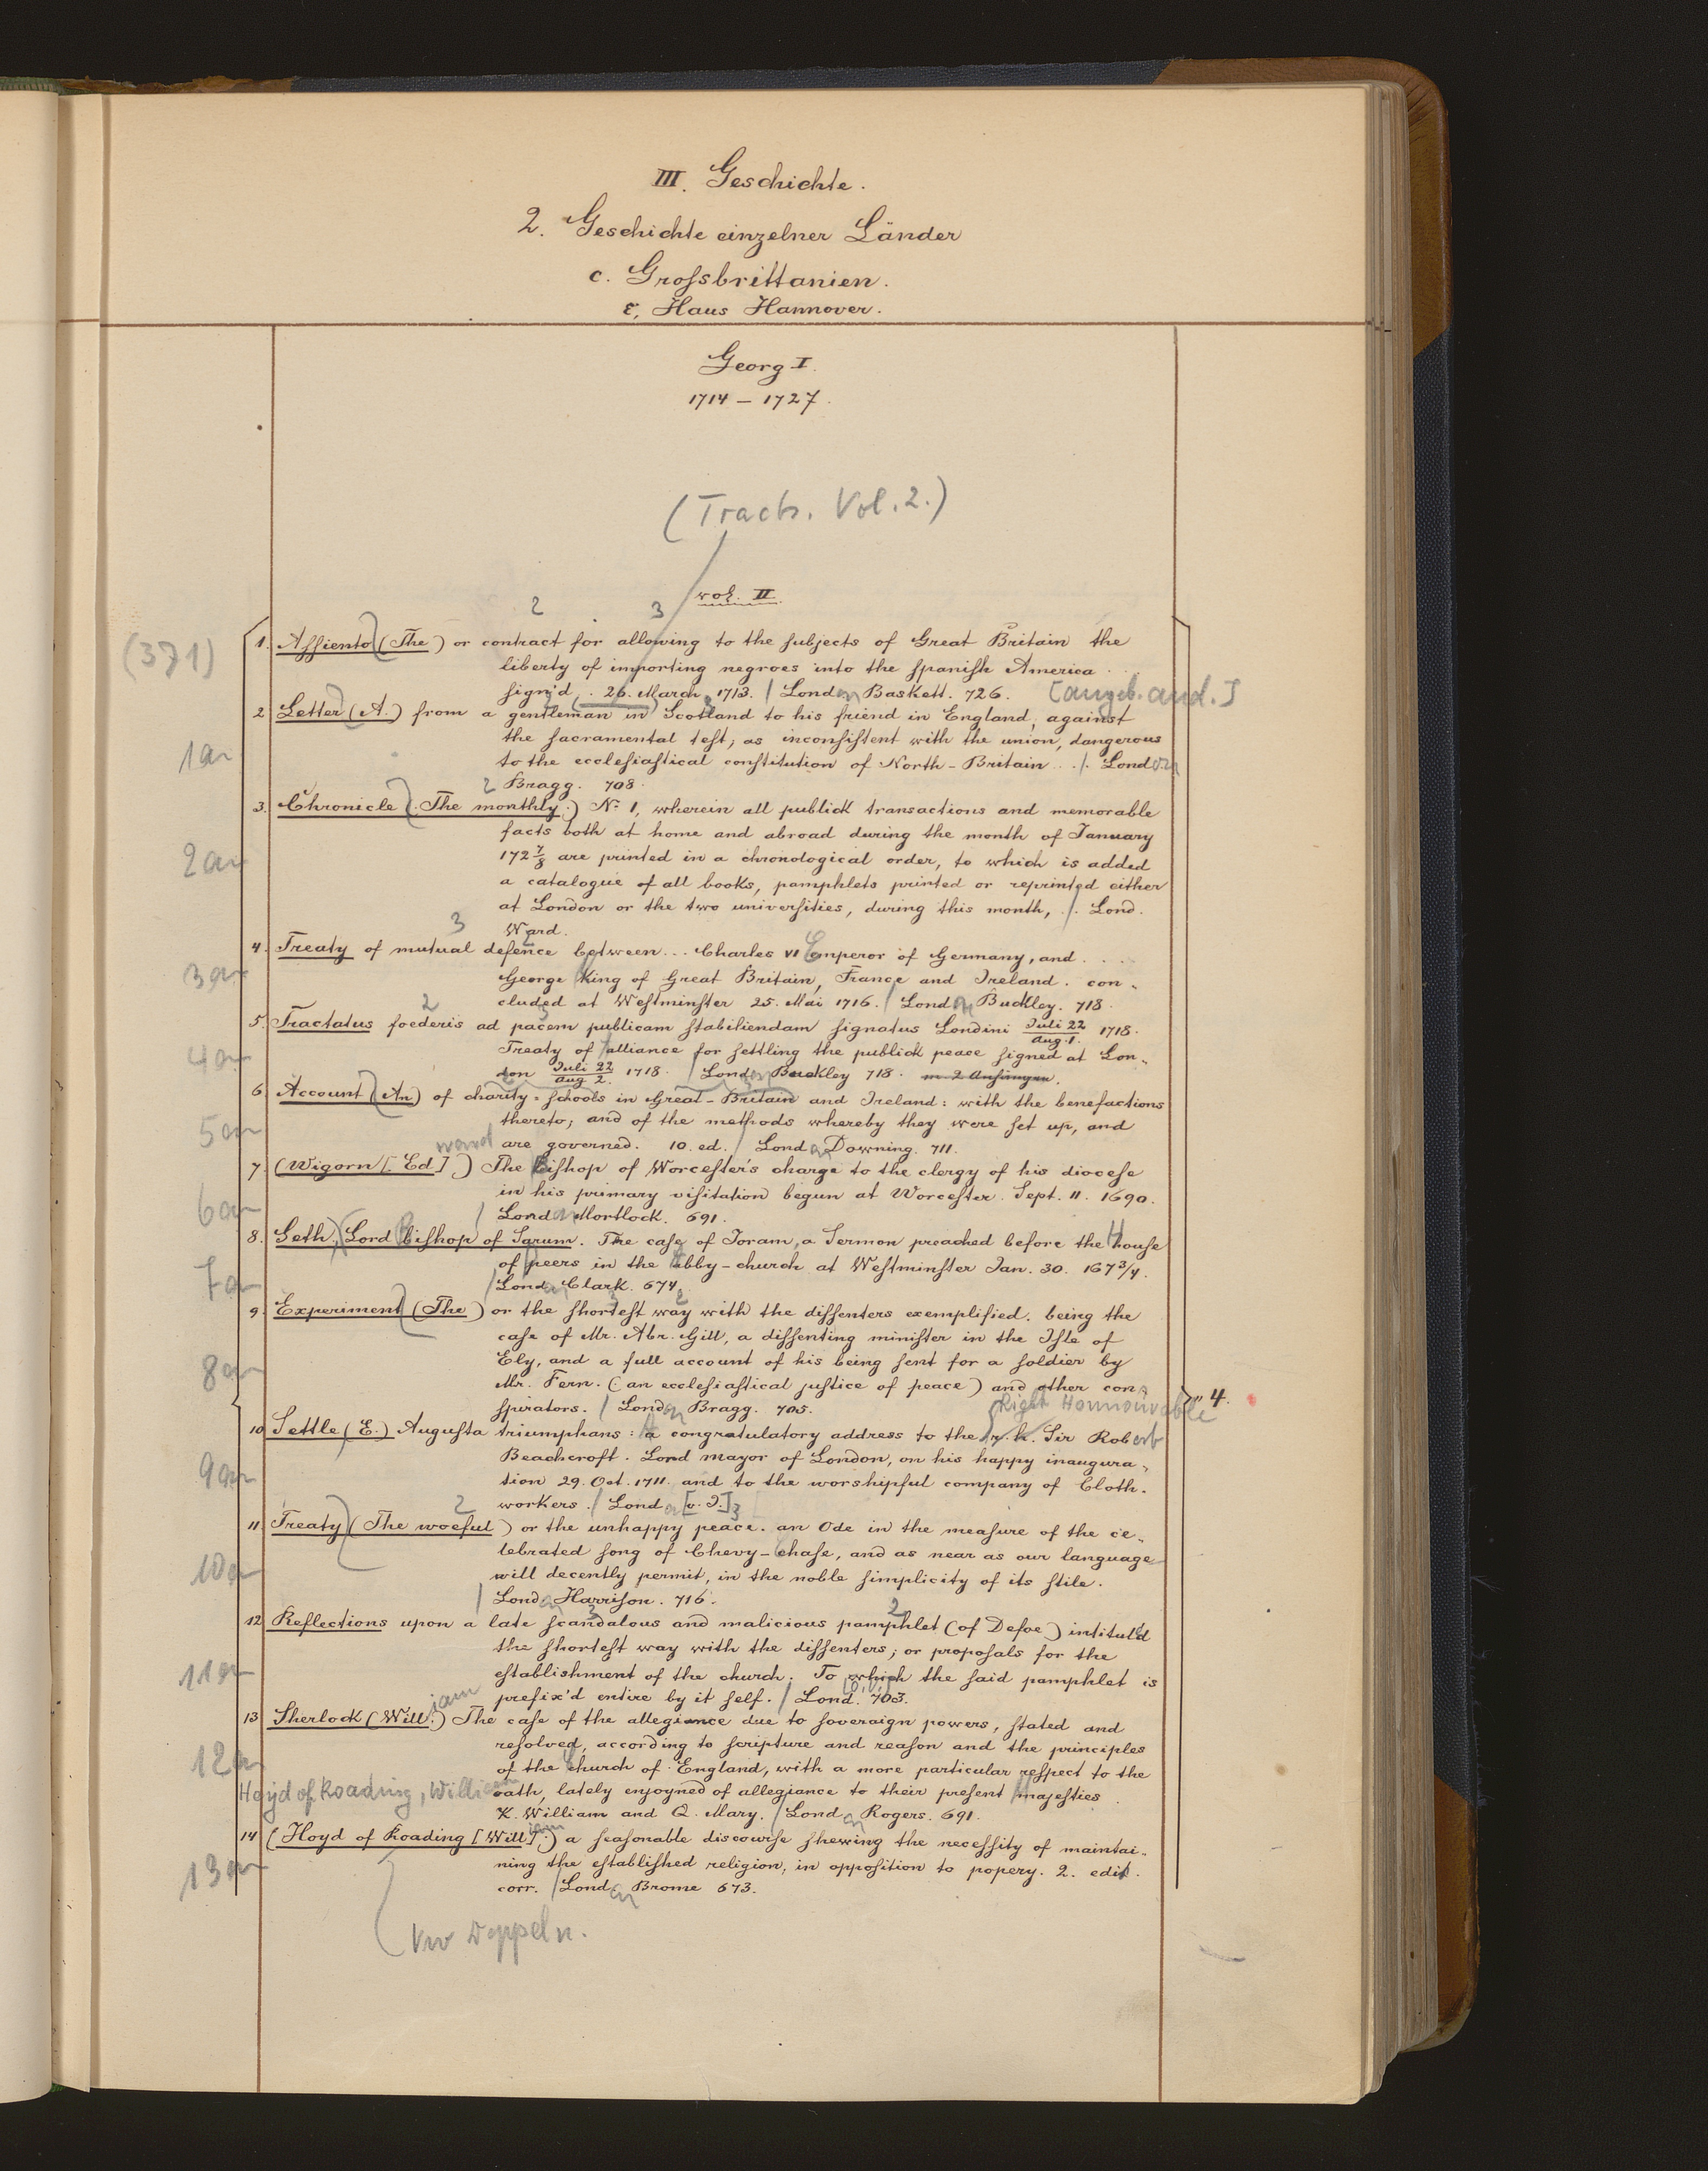 III. Geschichte.
2. Geschichte einzelner Länder
c. Grossbrittanien.
ε, Haus Hannover.
Georg I.
1714 – 1727.
(Tracts. Vol. 2.)
vol. II
2 3
(371)
1. Assiento (The) or contract for allowing to the subjects of Great Britain the
liberty of importing negroes into the spanish America . .
sign'd . 26. March 1713. / London Baskett. 726. [angeb. and.]
2 Letter (A.) from a gentleman in Scotland to his friend in England, against
the sacramental test, as inconsistent with the union, dangerous
1an
to the ecclesiastical constitution of North-Britain . . /. London
2 Bragg. 708.
3. Chronicle (The monthly.) No 1, wherein all publick transactions and memorable
facts both at home and abroad during the month of January
2an
172 7/8 are printed in a chronological order, to which is added
a catalogue of all books, pamphlets printed or reprinted either
at London or the two universities, during this month, . /. Lond.
3 Ward.
4. Treaty of mutual defence between... Charles VI Emperor of Germany, and . . . .
3an
George King of Great Britain, France and Ireland. con-
cluded at Westminster 25. Mai 1716. / London Buckley. 718.
2
5. Tractatus foederis ad pacem publicam stabiliendam signatus Londini Juli 22/Aug. 1. 1718.
4an
Treaty of alliance for settling the publick peace signed at Lon-
don Juli 22/Aug 2. 1718. / London Buckley 718. m. 2 Anhängen.
6. Account (An) of charity-schools in Great-Britain and Ireland: with the benefactions
5an
thereto; and of the methods whereby they were set up, and
are governed. 10. ed. / London Downing. 711.
ward
7. (Wigorn [. Ed].) The Bishop of Worcester's charge to the clergy of his diocese
6an
in his primary visitation begun at Worcester. Sept. 11. 1690.
/ London Mortlock. 691.
8. Seth, Lord Bishop of Sarum. The case of Joram, a Sermon preached before the House
7an
of peers in the abby-church at Westminster Jan. 30. 167 3/4.
/ London Clark. 674.
9. Experiment (The) or the shortest way with the dissenters exemplified. being the
case of Mr. Abr. Gill, a dissenting minister in the Isle of
8an
Ely, and a full account of his being sent for a soldier by
Mr. Fern. (an ecclesiastical justice of peace) and other con-
" 4.
spirators. / London Bragg. 705.
Right Honnourable
10 Settle (E.) Augusta triumphans: A congratulatory address to the r. h. Sir Robert
Beachcroft. Lord mayor of London, on his happy inaugura-
9an
tion 29. Oct. 1711. and to the worshipful company of Cloth-
workers. / London [v. J.] 3
2
11. Treaty (The woeful) or the unhappy peace. an Ode in the measure of the ce-
lebrated song of Chevy-Chase, and as near as our language
10an
will decently permit, in the noble simplicity of its stile.
/ London Harrison. 716.
12 Reflections upon a late scandalous and malicious pamphlet (of Defoe) intituled
the shortest way with the dissenters; or proposals for the
11an
establishment of the church. To which the said pamphlet is
prefix'd entire by it self. / Lond. 703.
iam
13 Sherlock (Will.) The case of the allegiance due to soveraign powers, stated and
resolved, according to scripture and reason and the principles
12an
of the Church of England, with a more particular respect to the
Hoyd of Roading, William
oath, lately enjoyned of allegiance to their present Majesties .
K. William and Q. Mary. / London Rogers. 691.
iam
14 (Hoyd of Roading [Will].) a seasonable discourse shewing the necessity of maintai-
13an
ning the established religion, in opposition to popery. 2. edit.
corr. / London Brome 673.